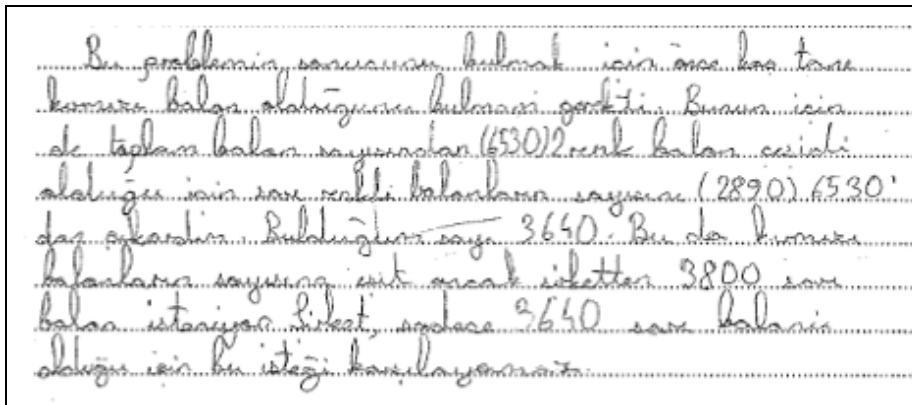 Bu problemin sonucunu bulmak için önce kaç tane
kırmızı balon olduğunu bulmam gerekti. Bunun için
de toplam balon sayısından (6530) 2 renk balon çeşidi
olduğu için sarı renkli balonların sayısını (2890) 6530'
dan çıkardım. Bulduğum sayı 3640. Bu da kırmızı
balonların sayısına eşit ancak şirketten 3800 sarı
balon isteniyor Şirket, sadece 3640 sarı balonu
olduğu için bu isteği karşılayamaz.